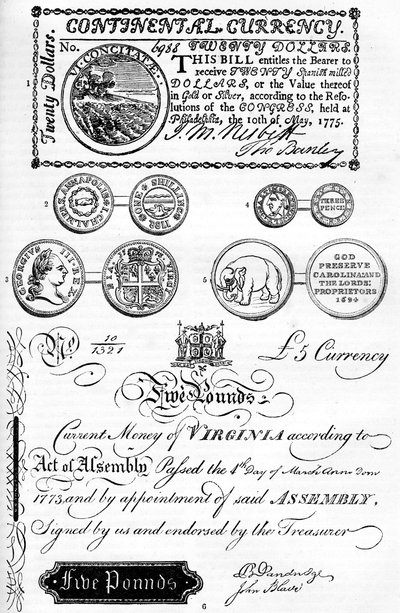 CONTINENTAL CURRENCY.
Twenty Dollars.
No. 6988 TWENTY DOLLARS.
VI CONCITATÆ
THIS BILL entitles the Bearer to
receive TWENTY Spanish mill'd
DOLLARS, or the Value thereof
in Gold or Silver, according to the Reso-
lutions of the CONGRESS, held at
Philadelphia, the 10th of May, 1775.
J. M. Nesbitt
1
2
I. CHALMERS, ANNAPOLIS.
ONE SHILLING
4
THREE
PENCE
3
GEORGIVS III·REX.
VIRGI NIA
5
GOD
PRESERVE
CAROLINA: AND
THE LORDS:
PROPRIETORS
1694
No. 10/1321
£5 Currency
Five Pounds
Current Money of VIRGINIA according to
Act of Assembly Passed the 4th Day of March Anno Dom
1773, and by appointment of said ASSEMBLY,
Signed by us and endorsed by the Treasurer
Five Pounds.
John Blair
6